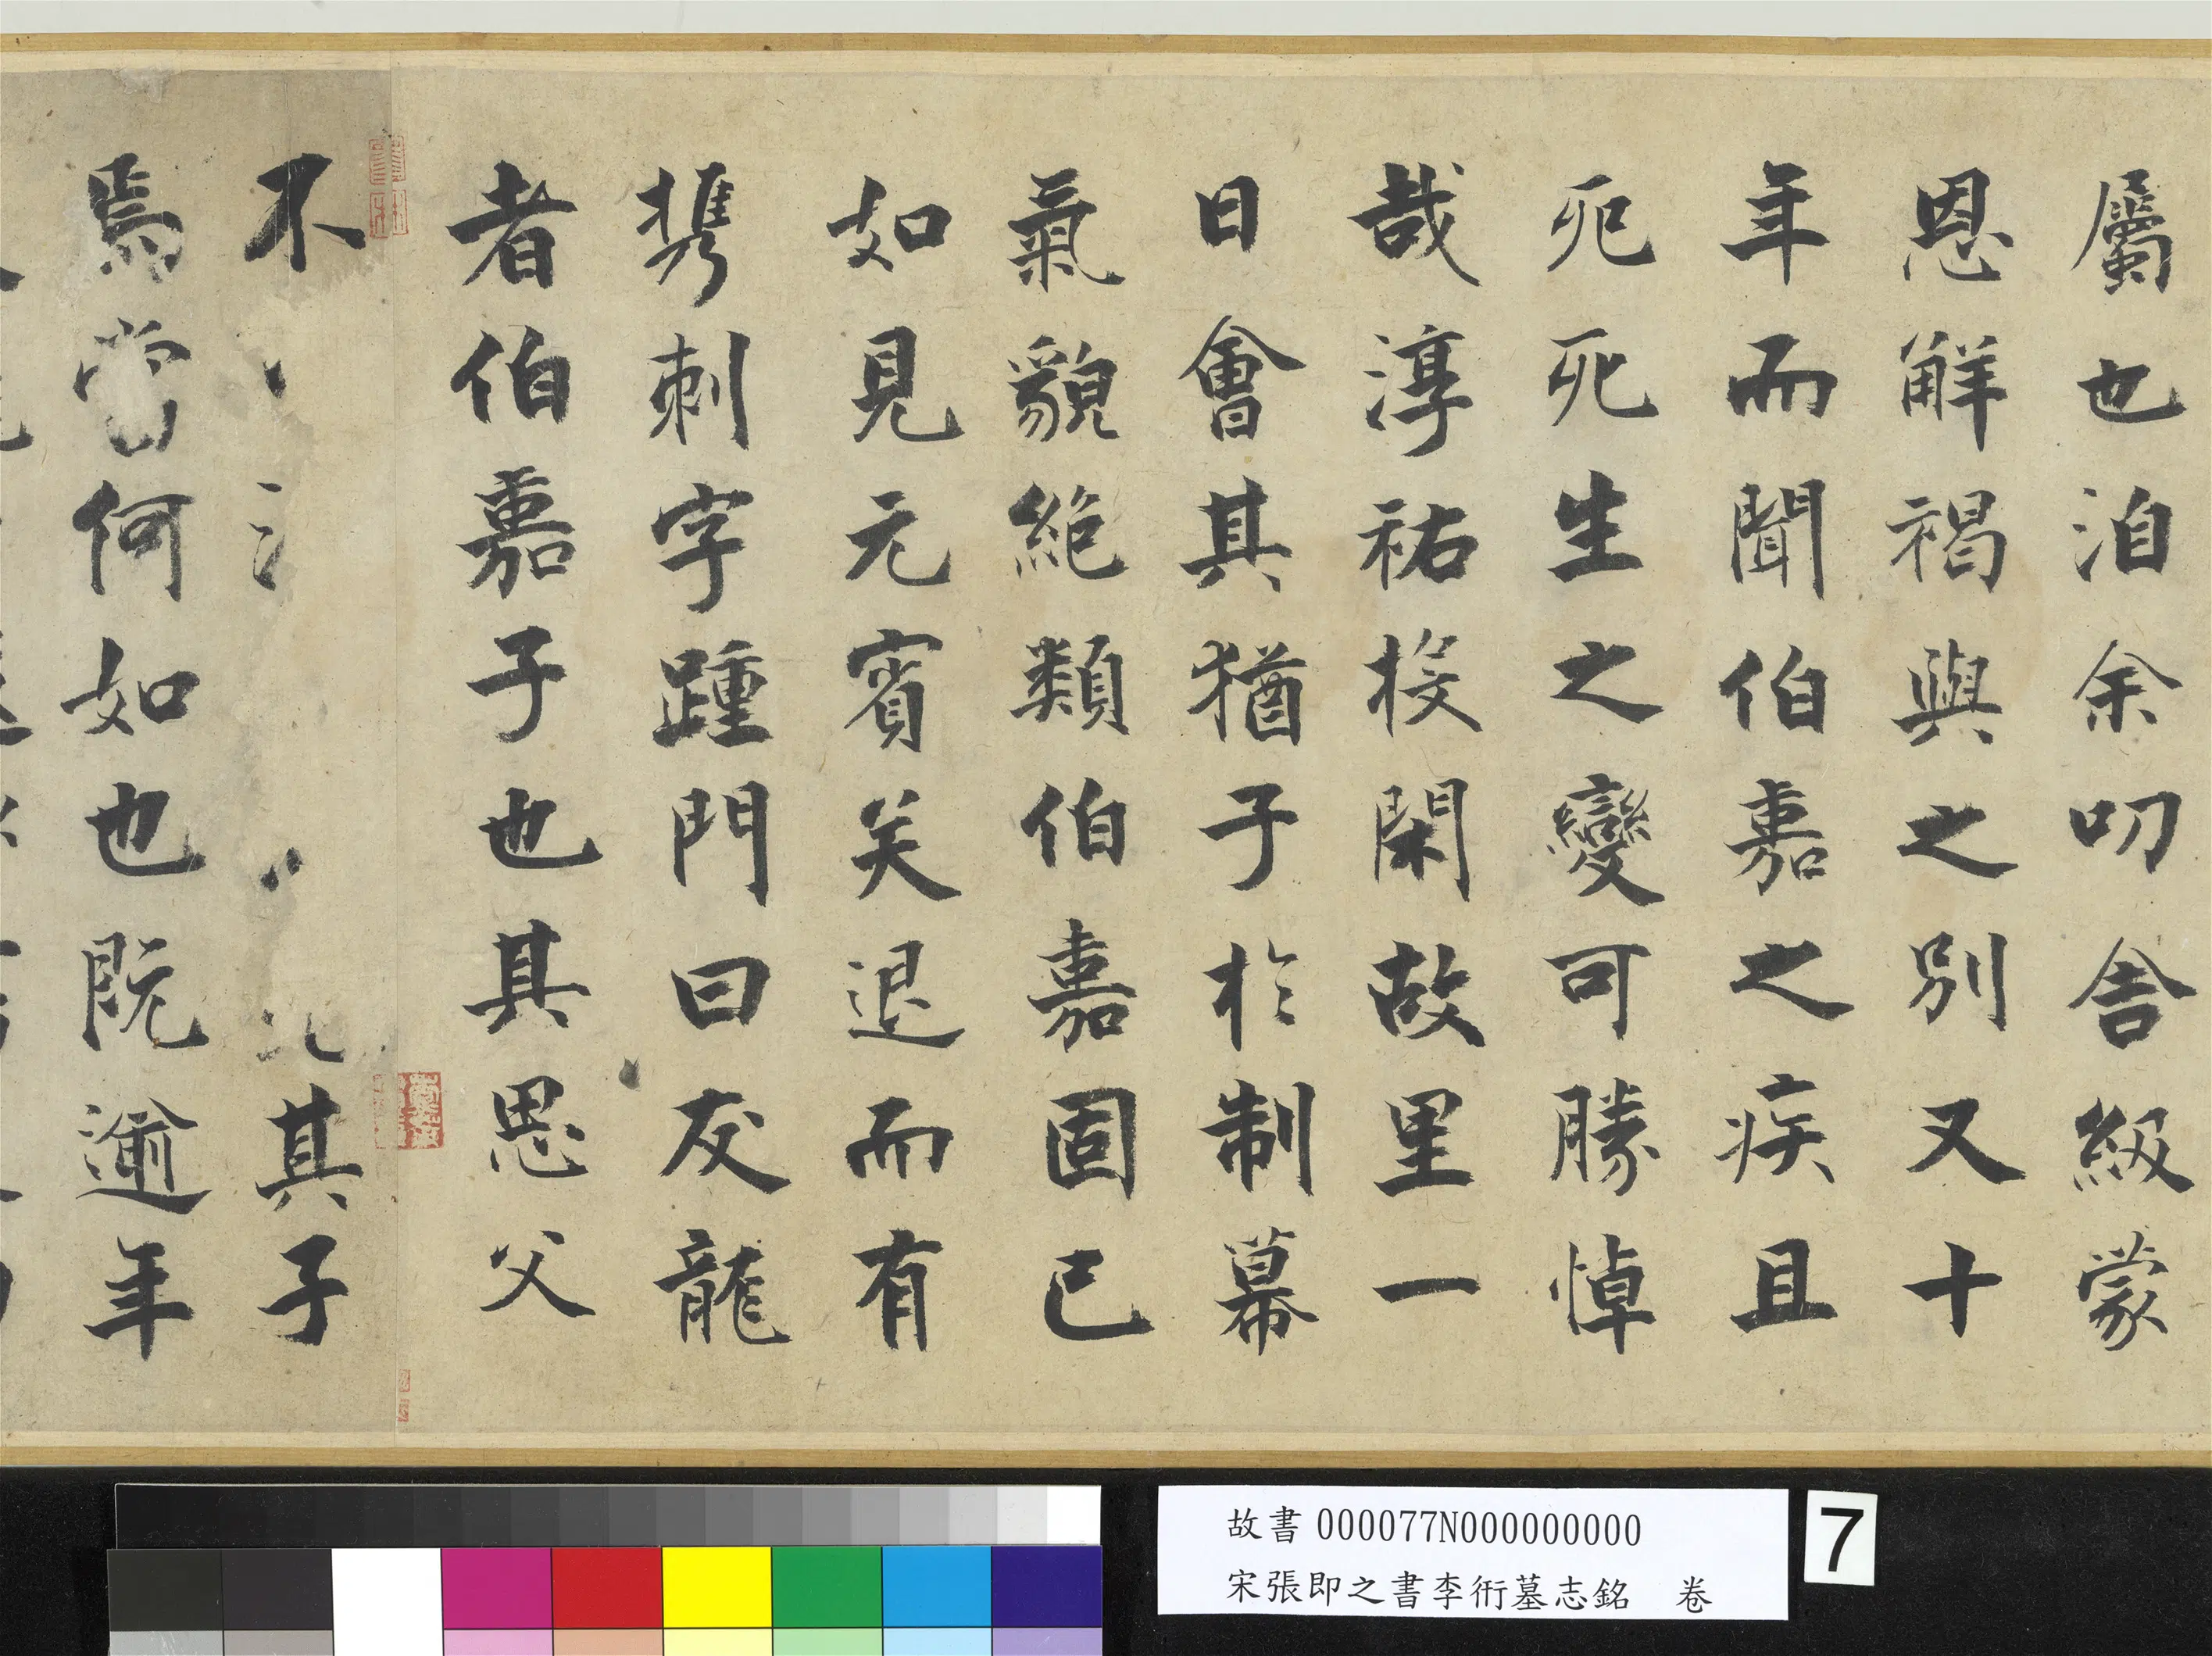 屬也洎余叨舍級蒙
恩解褐與之別又十
年而聞伯嘉之疾且
死死生之變可勝悼
哉淳祐投閑故里一
日會其猶子於制幕
氣貌絕類伯嘉固已
如見元賓矣退而有
携刺字踵門曰友龍
者伯嘉子也其思父
不其子
焉當何如也既逾年
故書 000077N000000000
宋張即之書李衎墓志銘 卷
7